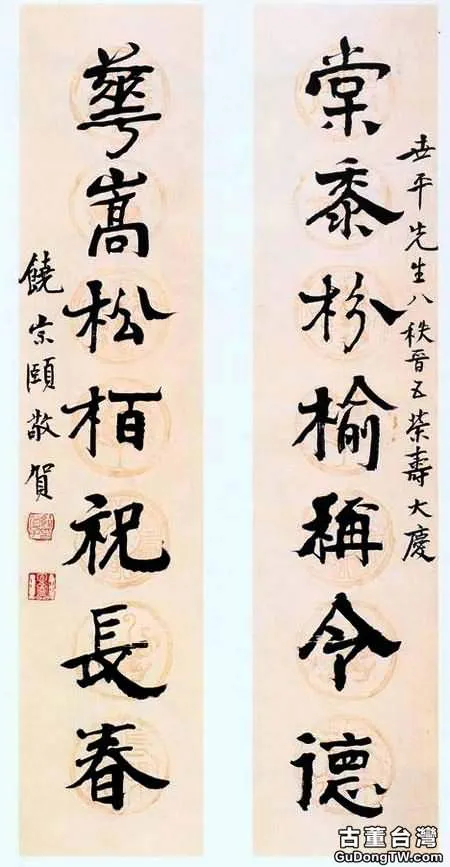 世平先生八秩晉五榮壽大慶
棠黍枌榆稱令德
華嵩松栢祝長春
饒宗頤敬賀
古董台灣
GuDongTW.com